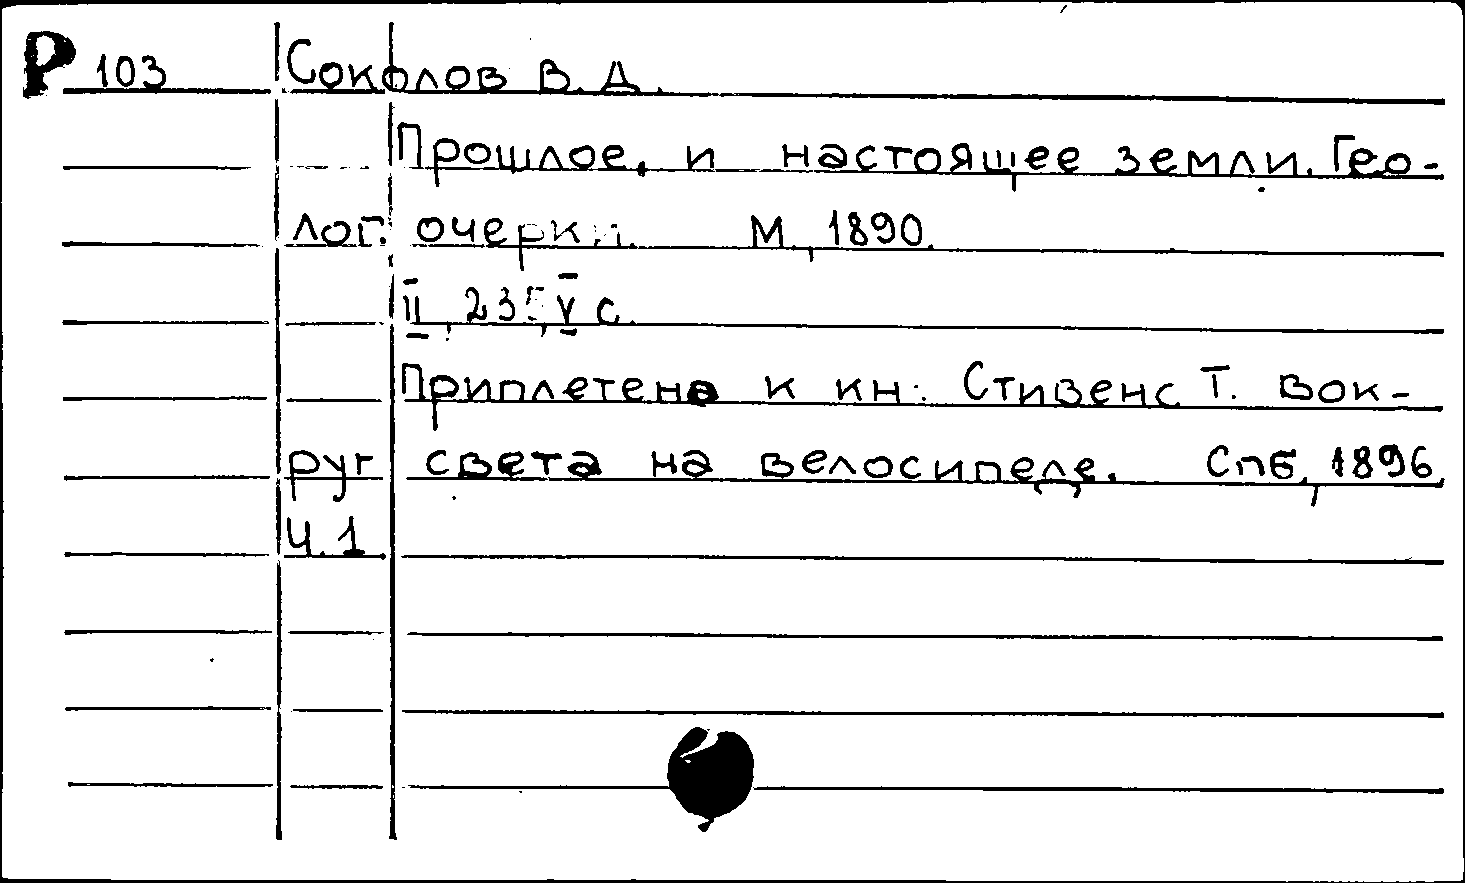 Р 103 Соколов В. Д.
Прошлое, и настоящее земли. Гео-
лог. очерки. М., 1890.
II, 235, V с.
Приплетена к кн: Стивенс Т. Вок-
руг света на велосипеде. Спб, 1896,
Ч.1